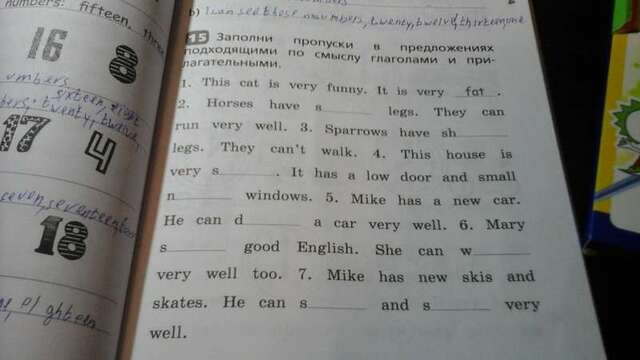 numbers: fifteen, three
16
8
umbers
sixteen, eight
bers, twenty, twelve,
17
4
seven, seventeen,
18
eighteen
b) I can see those numbers, twenty, twelve, thirteen, one
15 Заполни пропуски в предложениях
подходящими по смыслу глаголами и при-
лагательными.
1. This cat is very funny. It is very fat.
2. Horses have s______ legs. They can
run very well. 3. Sparrows have sh______
legs. They can't walk. 4. This house is
very s______. It has a low door and small
n______ windows. 5. Mike has a new car.
He can d______ a car very well. 6. Mary
s______ good English. She can w______
very well too. 7. Mike has new skis and
skates. He can s______ and s______ very
well.